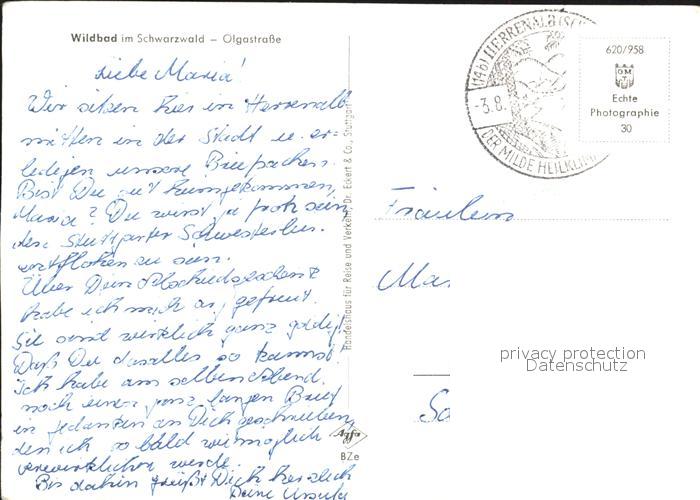 Wildbad im Schwarzwald – Olgastraße
Liebe Maria!
Wir sitzen hier in Herrenalb
mitten in der Stadt u. er-
ledigen unsere Briefsachen.
Bist Du gut heimgekommen,
Maria? Du wirst ja froh sein
den Stuttgarter Schwesterlein.
entflohen zu sein.
Über Dein Hochzeitsgeschenk
habe ich mich arg gefreut.
Sie sind wirklich ganz goldig.
Daß Du das alles so kannst.
Ich habe am selben Abend
noch einen ganz langen Brief
in Gedanken an Dich geschrieben,
den ich so bald wie möglich
verwirklichen werde.
Bis dahin grüßt Dich herzlich
Deine Ursula
Handelshaus für Reise und Verkehr, Dr. Eckert & Co., Stuttgart
Agfa
BZe
(14b) HERRENALB (SCH
-3.8.
DER MILDE HEILKLIMA
620/958
Echte
Photographie
30
Fräulein
Ma
privacy protection
Datenschutz